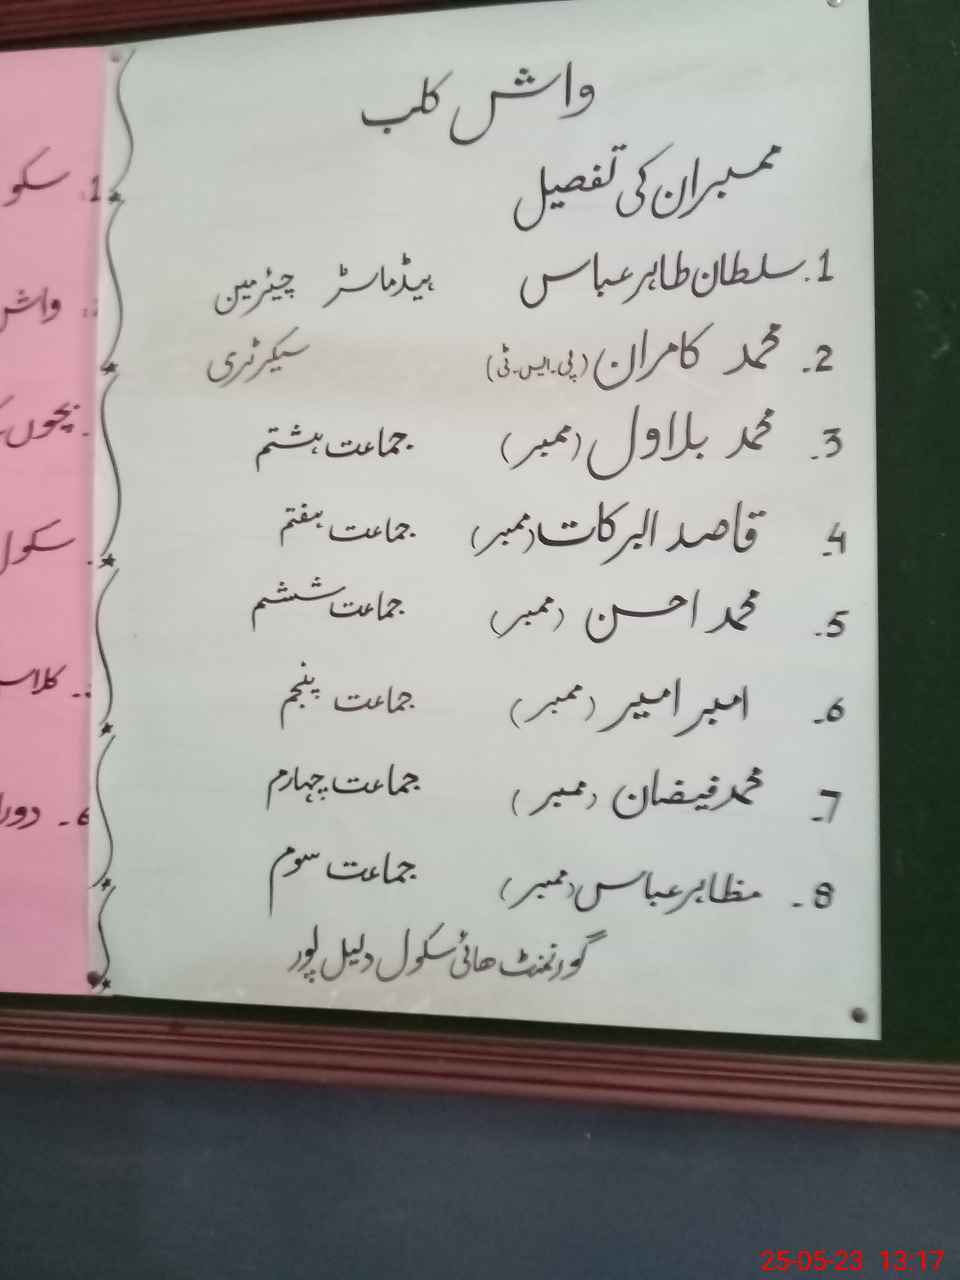 واش کلب
ممبران کی تفصیل
1. سلطان طاہر عباس ہیڈ ماسٹر چیئرمین
2. محمد کامران (پی۔ایس۔ٹی) سیکرٹری
3. محمد بلاول (ممبر) جماعت ہشتم
4. قاصد البرکات (ممبر) جماعت ہفتم
5. محمد احسن (ممبر) جماعت ششم
6. امبر امیر (ممبر) جماعت پنجم
7. محمد فیضان (ممبر) جماعت چہارم
8. مظاہر عباس (ممبر) جماعت سوم
گورنمنٹ ھائی سکول دلیل پور
1. سکو
واش
بچوں
سکول
کلاس
6۔ دورا
25-05-23 13:17